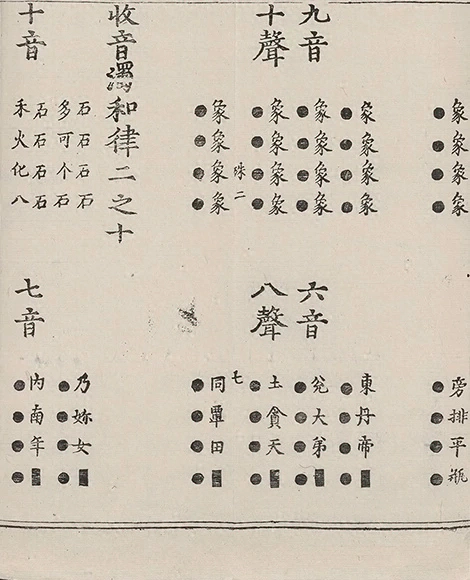 象象象象
●●●●
旁排平瓶
●●●●
九音
十聲
象象象象
●●●●
象象象象
●●●●
象象象象
●●●●
象象象象
●●●●
六音
八聲
東丹帝■
●●●●
兊大弟■
●●●●
土貪天■
●●●●
七
同覃田■
●●●●
收音濁和律二之十
十音
石石石石
多可个舌
石石石石
禾火化八
七音
乃妳女■
●●●●
內南年■
●●●●